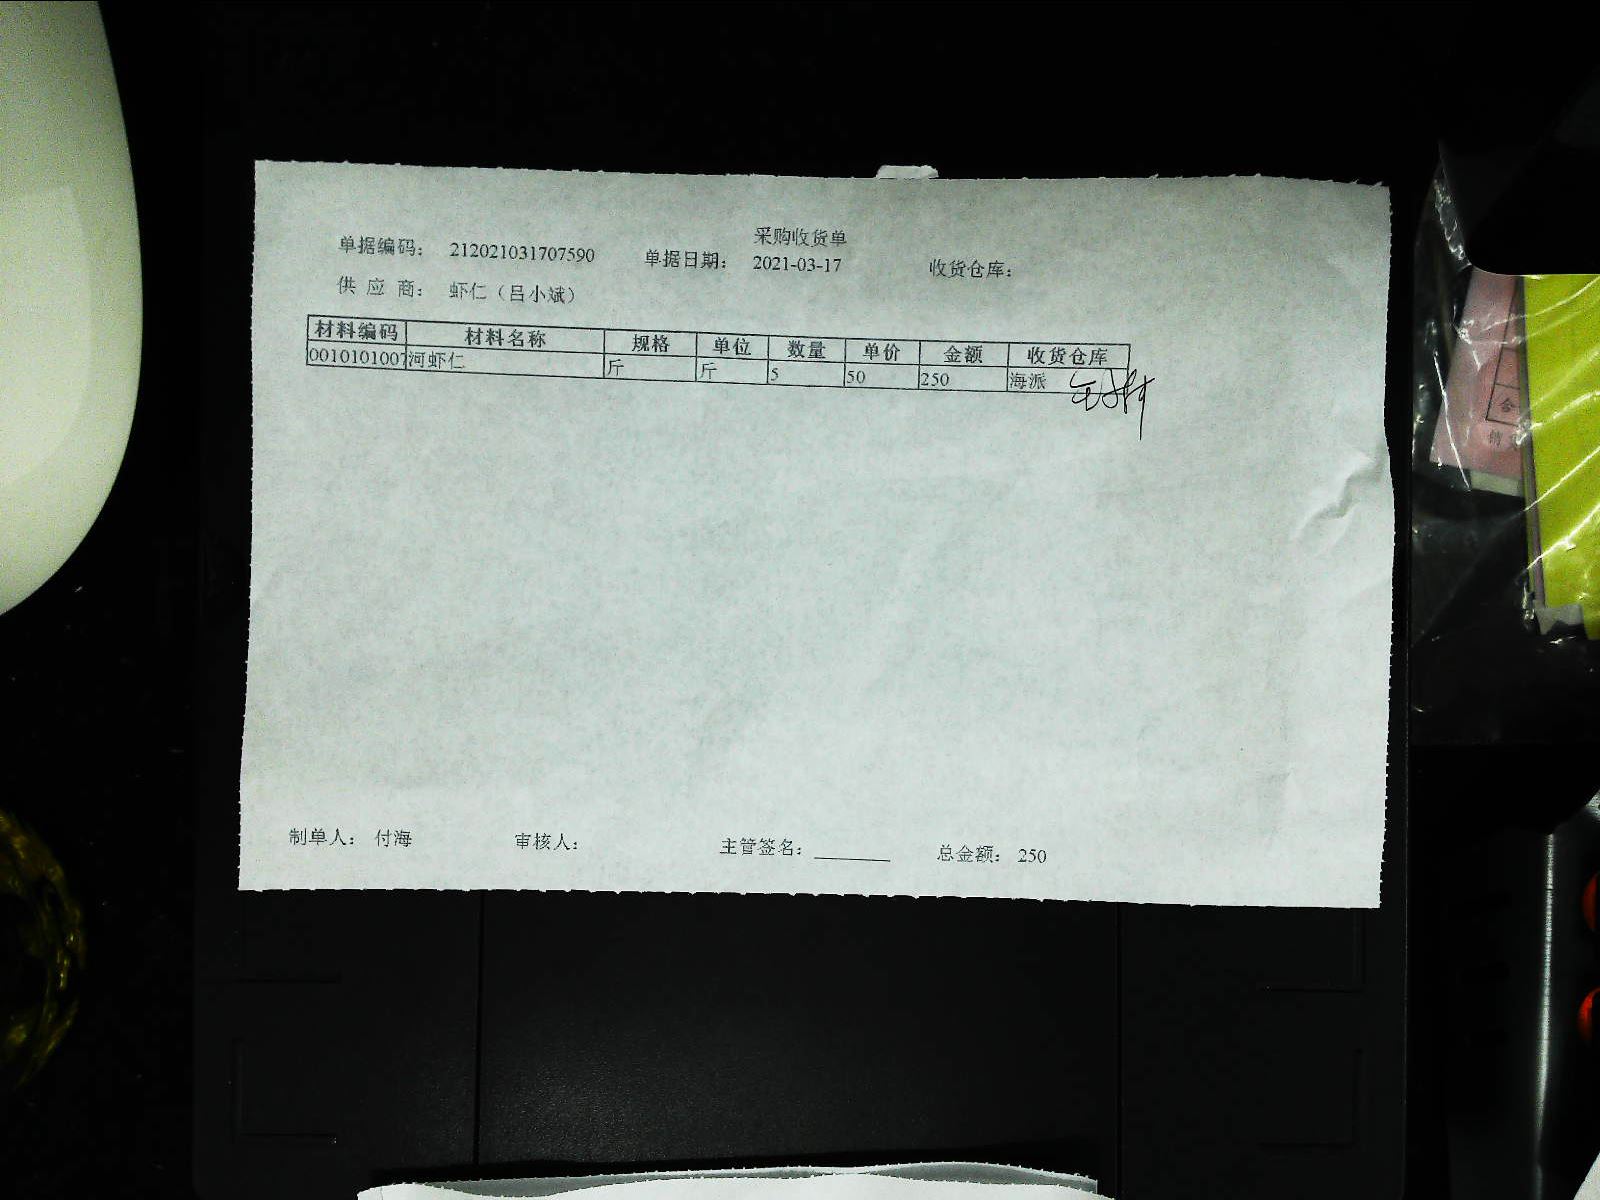 采购收货单
单据编码： 212021031707590 单据日期： 2021-03-17 收货仓库：
供 应 商： 虾仁（吕小斌）
材料编码 材料名称 规格 单位 数量 单价 金额 收货仓库
0010101007 河虾仁 斤 斤 5 50 250 海派
制单人： 付海 审核人： 主管签名： ________ 总金额： 250
合